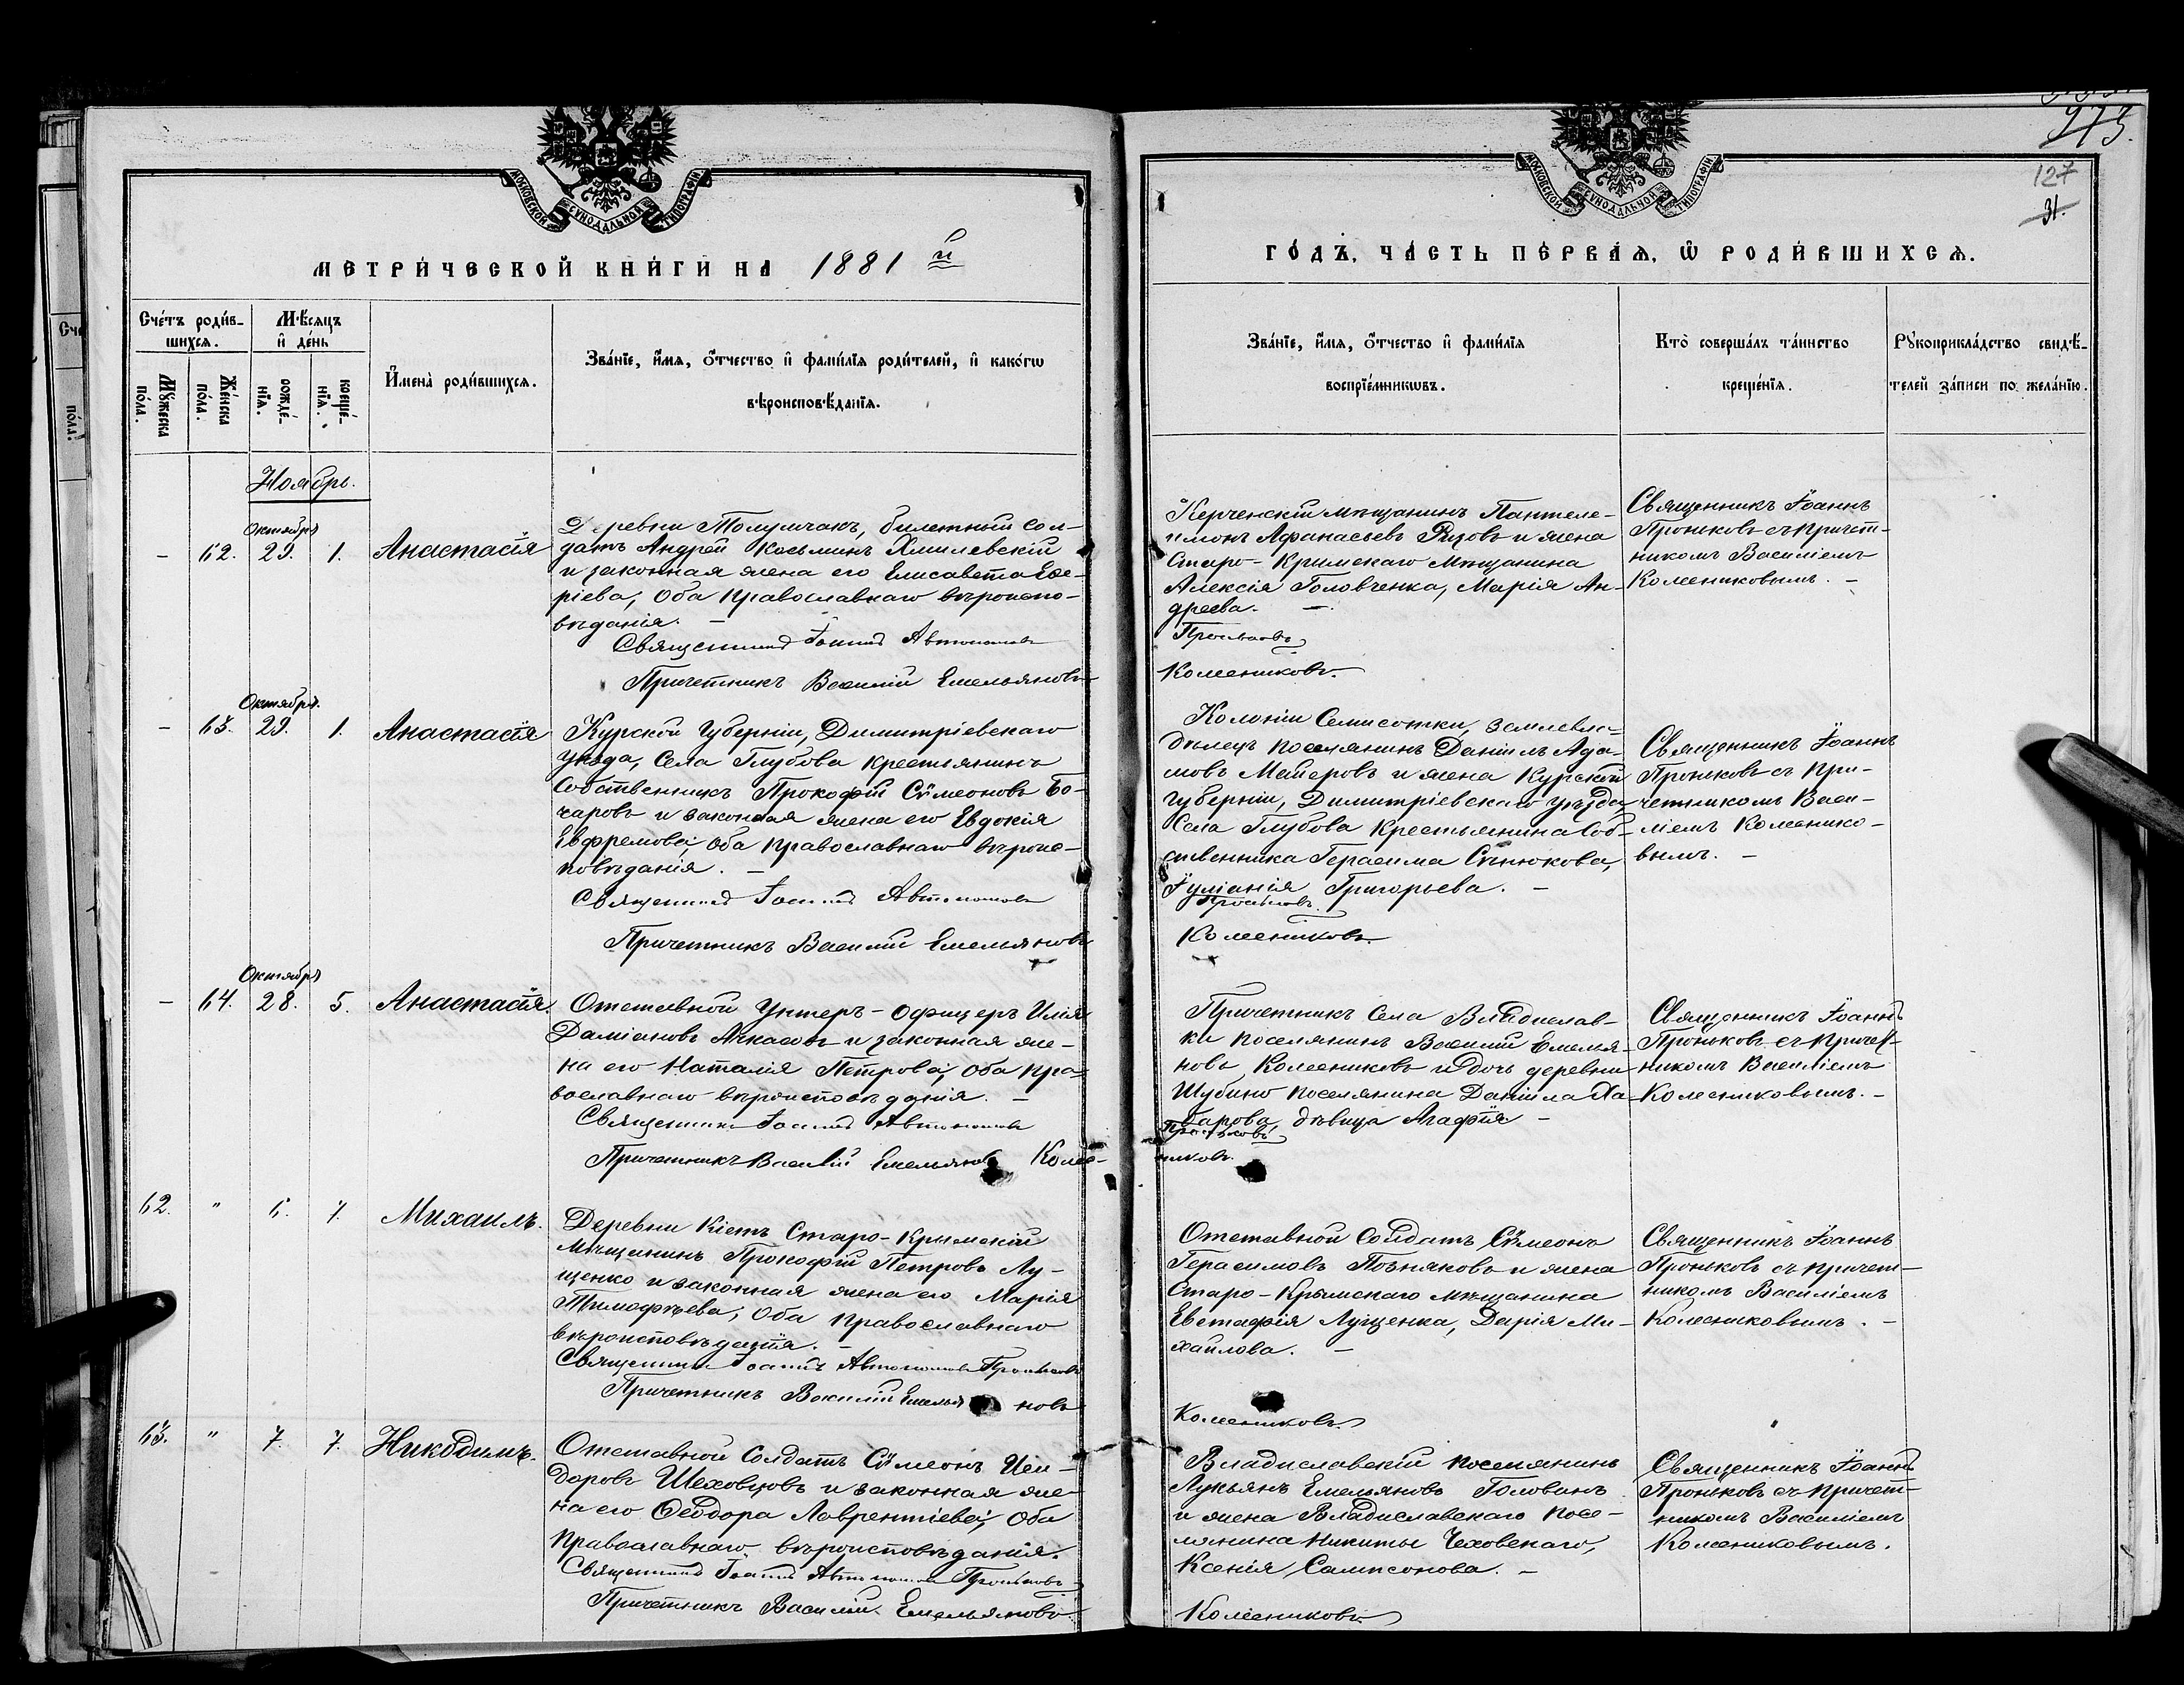 973.
127
31.
МОСКОВСКОЙ СѴНОДАЛЬНОЙ ТИПОГРАФІИ
МОСКОВСКОЙ СѴНОДАЛЬНОЙ ТИПОГРАФІИ
МЕТРИ́ЧЕСКОЙ КНИ́ГИ НА 1881 й
ГО́ДЪ, ЧА́СТЬ ПЕ́РВАѦ, Ѿ РОДИ́ВШИХСѦ.
Сче́тъ роди́в-
шихсѧ.
Мꙋ́жеска по́ла.
Же́нска по́ла.
Мѣ́сѧцъ
и҆ де́нь
рожде́-
нїѧ.
креще́-
нїѧ.
И҆мена̀ роди́вшихсѧ.
Зва́нїе, и҆́мѧ, ѻ҆́тчество и҆ фами́лїѧ роди́телей, и҆ како́гѡ
вѣроисповѣ́данїѧ.
Зва́нїе, и҆́мѧ, ѻ҆́тчество и҆ фами́лїѧ
воспрїе́мникѡвъ.
Кто̀ соверша́лъ та́инство
креще́нїѧ.
Рꙋкоприкла́дство свидѣ́-
телей за́писи по жела́нїю.
Ноябрь.
Октября
- 62. 29. 1. Анастасія
Деревни Толумчакъ, билетный сол-
датъ Андрей Косьминъ Хмилевскій
и законная жена его Елисавета
ріева, оба православнаго вѣроиспо-
вѣданія. -
Священникъ Іоаннъ Автономовъ
Причетникъ Василій Емельяновъ
Керченскій мѣщанинъ Пантеле-
имонъ Афанасьевъ и жена
Старо-Кримскаго Мѣщанина
Алексія Головченка, Марія Ан-
дреева. -
Проньковъ
Колесниковъ.
Священникъ Іоаннъ
Проньковъ съ причет-
никомъ Василіемъ
Колесниковымъ. -
Октября.
- 63. 29. 1. Анастасія
Курской Губерніи, Димитріевскаго
уѣзда, Села Глубова крестьянинъ
Собственникъ Прокофій Сѵмеоновъ Бо-
чаровъ и законная жена его Евдокія
Евфремова, оба православнаго вѣроис-
повѣданія. -
Священникъ Іоаннъ Автономовъ
Причетникъ Василій Емельяновъ
Колоніи Семисотки, землевла-
дѣлецъ поселянинъ Даніилъ Ада-
мовъ Мейеровъ и жена Курской
губерніи, Димитріевскаго уѣзда
Села Глубова Крестьянина Соб-
ственника Герасима Сѣнюкова,
Іуліанія Григорьева. -
Проньковъ.
Колесниковъ
Священникъ Іоаннъ
Проньковъ съ при-
четникомъ Васи-
ліемъ Колеснико-
вымъ. -
Октября
- 64. 28. 5. Анастасія.
Отставной Унтеръ-офицеръ Илія
Даміановъ и законная же-
на его Наталія Петрова, оба пра-
вославнаго вѣроисповѣданія. -
Священникъ Іоаннъ Автономовъ
Причетникъ Василій Емельяновъ Колес-
Причетникъ Села Владислав-
ки поселянинъ Василій Емелья-
новъ Колесниковъ и дочь деревни
Шубино поселянина Даніила Ха-
барова, дѣвица Агафія -
Проньковъ
никовъ.
Священникъ Іоаннъ
Проньковъ съ причет-
никомъ Василіемъ
Колесниковымъ. -
62. " 6. 7. Михаилъ.
Деревни Кіетъ Старо-Крымскій
мѣщанинъ Прокофій Петровъ Лу-
щенко и законная жена его Марія
Тимофѣева, оба православнаго
вѣроисповѣданія. -
Священникъ Іоаннъ Автономовъ Проньковъ
Причетникъ Василій Емелья новъ
Отставной Солдатъ Сѵмеонъ
Герасимовъ Позняковъ и жена
Старо-Крымскаго мѣщанина
Евстафія Лущенка, Дарія Ми-
хайлова. -
Колесниковъ
Священникъ Іоаннъ
Проньковъ съ причет-
никомъ Василіемъ
Колесниковымъ. -
63. " 7. 7. Никодимъ.
Отставной Солдатъ Сѵмеонъ Иси-
доровъ Шеховцовъ и законная же-
на его Феодора Лаврентіева, оба
православнаго вѣроисповѣданія.
Священникъ Іоаннъ Автономовъ Проньковъ
Причетникъ Василій Емельяновъ
Владиславскій поселянинъ
Лукьянъ Емельяновъ Голованъ
и жена Владиславскаго посе-
лянина Никиты Чеховскаго,
Ксенія Сампсонова. -
Колесниковъ
Священникъ Іоаннъ
Проньковъ съ причет-
никомъ Василіемъ
Колесниковымъ.